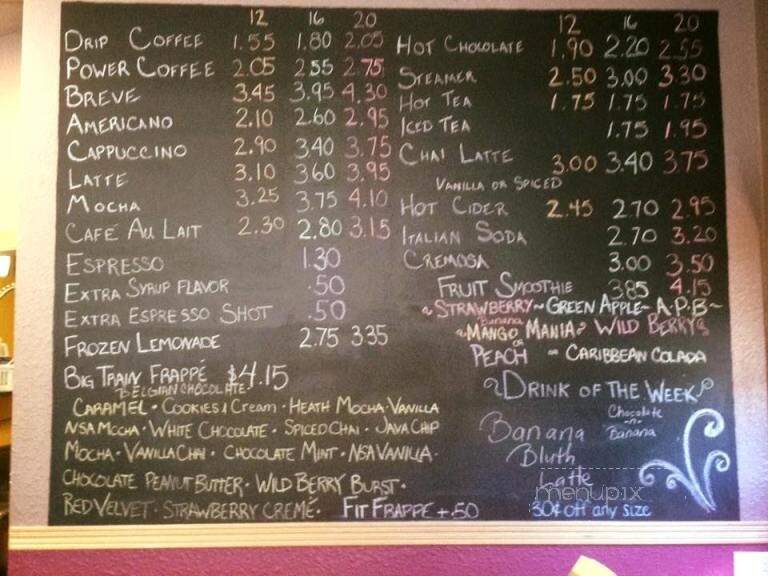 12 16 20
Drip Coffee 1.55 1.80 2.05
Power Coffee 2.05 2.55 2.75
Breve 3.45 3.95 4.30
Americano 2.10 2.60 2.95
Cappuccino 2.90 3.40 3.75
Latte 3.10 3.60 3.95
Mocha 3.25 3.75 4.10
Café Au Lait 2.30 2.80 3.15
Espresso 1.30
Extra Syrup Flavor .50
Extra Espresso Shot .50
Frozen Lemonade 2.75 3.35
Big Train Frappé $4.15
Belgian Chocolate
Caramel · Cookies & Cream · Heath Mocha · Vanilla
NSA Mocha · White Chocolate · Spiced Chai · Java Chip
Mocha · Vanilla Chai · Chocolate Mint · NSA Vanilla ·
Chocolate Peanut Butter · Wild Berry Burst ·
Red Velvet · Strawberry Cremé · Fit Frappe + .50
12 16 20
Hot Chocolate 1.90 2.20 2.55
Steamer 2.50 3.00 3.30
Hot Tea 1.75 1.75 1.75
Iced Tea 1.75 1.95
Chai Latte 3.00 3.40 3.75
Vanilla or Spiced
Hot Cider 2.45 2.70 2.95
Italian Soda 2.70 3.20
Cremosa 3.00 3.50
Fruit Smoothie 3.85 4.15
~Strawberry~Green Apple~A.P.B~
Banana
~Mango Mania~ Wild Berry
or
Peach ~ Caribbean Colada
Drink of the Week
Chocolate
-n-
Banana
Banana
Bluth
Latte
30¢ off any size
menupix